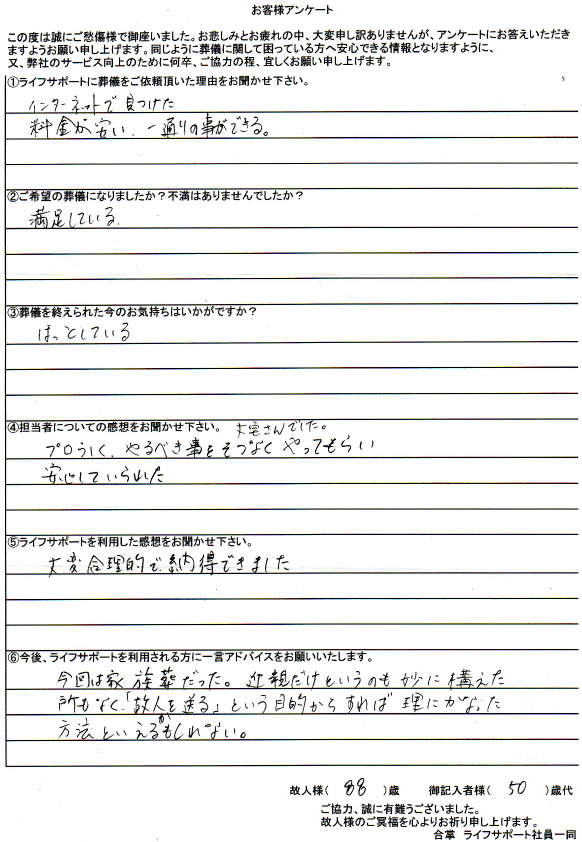 お客様アンケート
この度は誠にご愁傷様で御座いました。お悲しみとお疲れの中、大変申し訳ありませんが、アンケートにお答えいただき
ますようお願い申し上げます。同じように葬儀に関して困っている方へ安心できる情報となりますように、
又、弊社のサービス向上のために何卒、ご協力の程、宜しくお願い申し上げます。
①ライフサポートに葬儀をご依頼頂いた理由をお聞かせ下さい。
インターネットで見つけた
料金が安い、一通りの事ができる。
②ご希望の葬儀になりましたか？不満はありませんでしたか？
満足している。
③葬儀を終えられた今のお気持ちはいかがですか？
ほっとしている
④担当者についての感想をお聞かせ下さい。 大宅さんでした。
プロらしく、やるべき事をそつなくやってもらい
安心していられた
⑤ライフサポートを利用した感想をお聞かせ下さい。
大変合理的で納得できました
⑥今後、ライフサポートを利用される方に一言アドバイスをお願いいたします。
今回は家族葬だった。近親だけというのも妙に構えた
所もなく、「故人を送る」という目的からすれば理にかなった
方法といえるかもしれない。
故人様( 88 )歳 御記入者様( 50 )歳代
ご協力、誠に有難うございました。
故人様のご冥福を心よりお祈り申し上げます。
合掌 ライフサポート社員一同